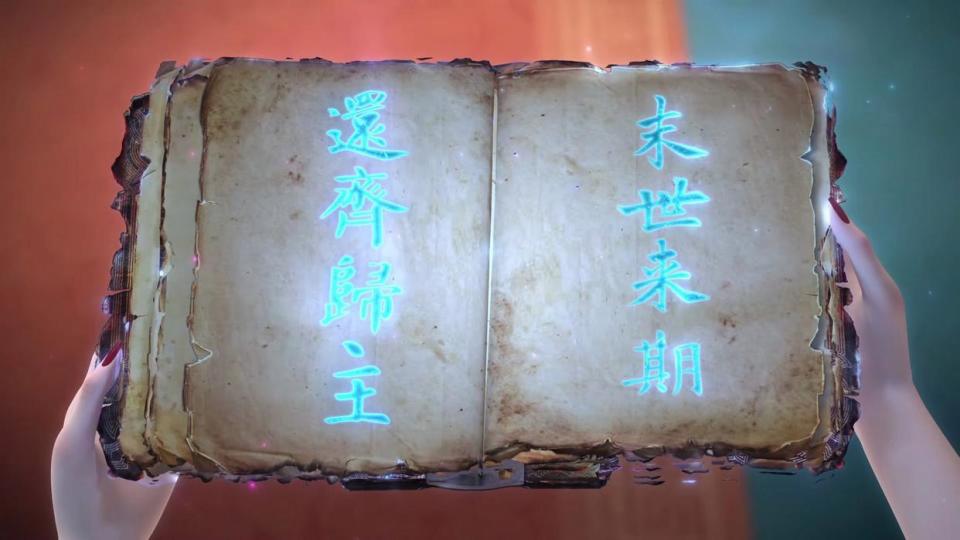 末世来期
還齊歸主